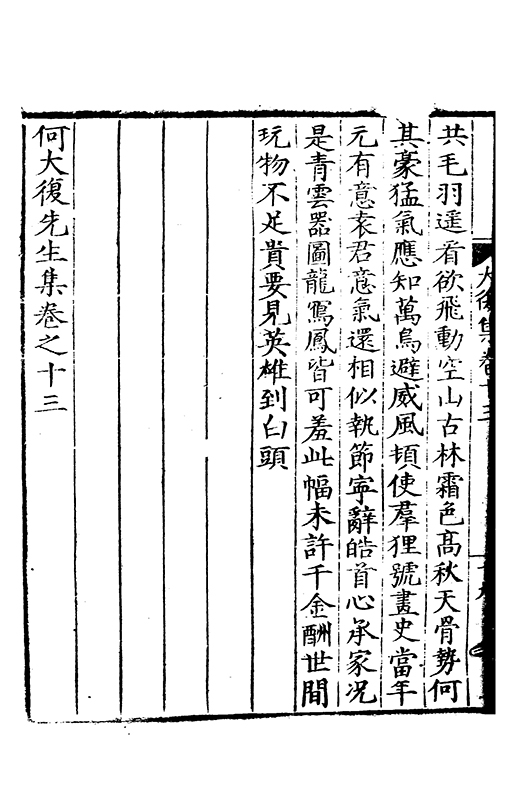 大復集卷十三
共毛羽遥看欲飛動空山古林霜色高秋天骨勢何
其豪猛氣應知萬鳥避威風頓使羣狸號畫史當年
元有意袁君意氣還相似執節寧辭皓首心承家况
是青雲器圖龍寫鳳皆可羞此幅未許千金酬世間
玩物不足貴要見英雄到白頭
何大復先生集卷之十三